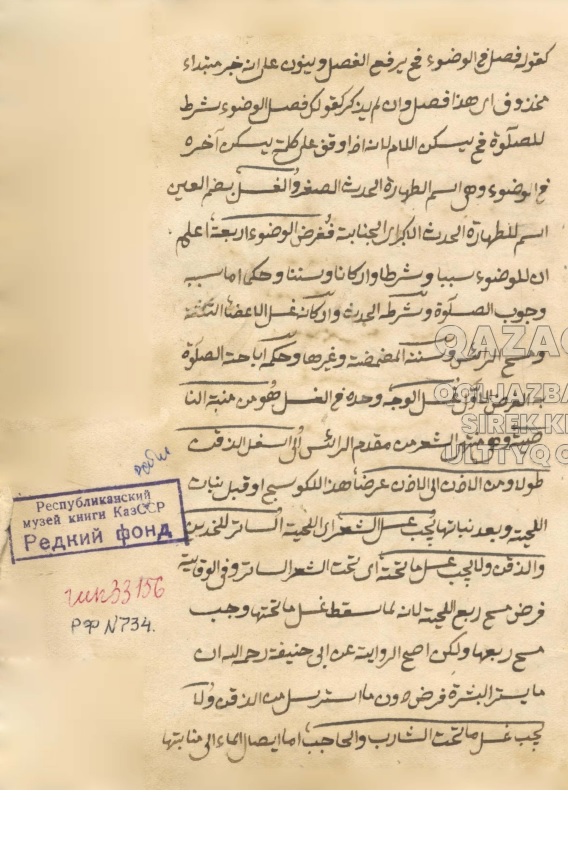 كقوله فصل في الوضوء فح يرفع الفصل وينون على انه خبر مبتداء
محذوف اى هذا فصل وان لم يذكر كقولك فصل الوضوء شرط
للصلوة فح يسكن اللام لانه اذا وقف على كلمة يسكن آخره
في الوضوء وهى اسم الطهارة الحدث الصغر والغسل بضم العين
اسم للطهارة الحدث الاكبر اى الجنابة ففرض الوضوء اربعة اعلم
ان للوضوء سببا وشرطا واركانا وسننا وحكما اما سببه
وجوب الصلوة وشرطه الحدث واركانه غسل الاعضا الثلثة
ومسح الرأس وسننه المضمضة وغيرها وحكمه اباحة الصلوة
به الفرض الاول غسل الوجه وحده في الغسل هو من منبة النا
صية وهو منتهى الشعر من مقدم الرائس الى اسفل الذقن
طولا ومن الاذن الى الاذن عرضا هذا للكوسج او قبل نبات
اللحية وبعد نباتها يجب غسل الشعر اى اللحية الساتر للخدين
والذقن ولا يجب غسل ما تحته اى تحت الشعر الساتر وفي الوقاية
فرض مسح ربع اللحية لانه لما سقط غسل ما تحتها وجب
مسح ربعها ولكن اصح الرواية عن ابى حنيفة رحمه الله ان
ما يستر البشرة فرض دون ما استرسل من الذقن ولا
يجب غسل ما تحت الشارب والحاجب اما ايصال الماء الى منابتها
Республиканский
музей книги КазССР
Редкий фонд
инк 33156
РФ N734.
QAZAQ
SIREK